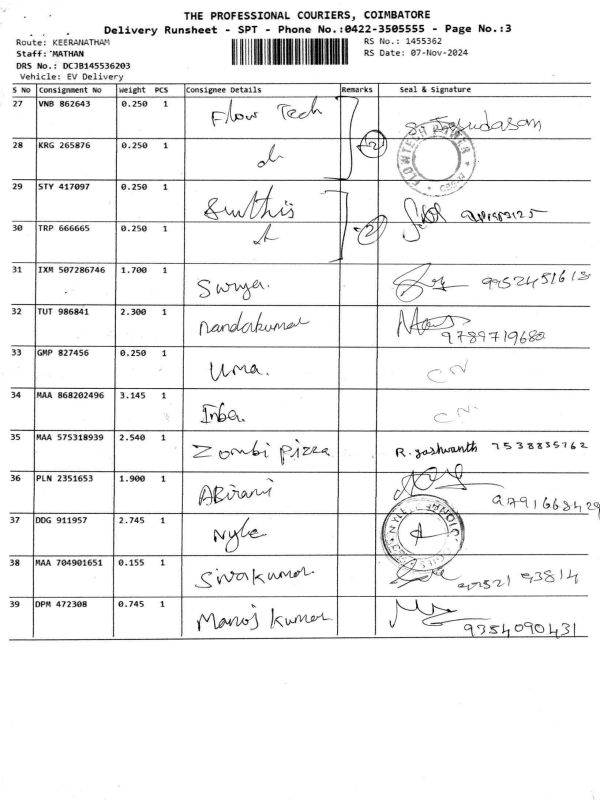 THE PROFESSIONAL COURIERS, COIMBATORE
Delivery Runsheet - SPT - Phone No.:0422-3505555 - Page No.:3
Route: KEERANATHAM RS No.: 1455362
Staff: MATHAN RS Date: 07-Nov-2024
DRS No.: DCJB145536203
Vehicle: EV Delivery
S No Consignment No Weight PCS Consignee Details Remarks Seal & Signature
27 VNB 862643 0.250 1 Flow Tech
28 KRG 265876 0.250 1 2
29 STY 417097 0.250 1
30 TRP 666665 0.250 1 2
31 IXM 507286746 1.700 1 Surya. 9952451613
32 TUT 986841 2.300 1 nandakumar 9789719682
33 GMP 827456 0.250 1 Uma. CN
34 MAA 868202496 3.145 1 Inba. CN.
35 MAA 575318939 2.540 1 Zombi pizza R. yashwanth 7538835762
36 PLN 2351653 1.900 1 ABirami 9791668429
37 DDG 911957 2.745 1 Nyle
38 MAA 704901651 0.155 1 Sivakumar. 93814
39 DPM 472308 0.745 1 Manoj kumar 9354090431